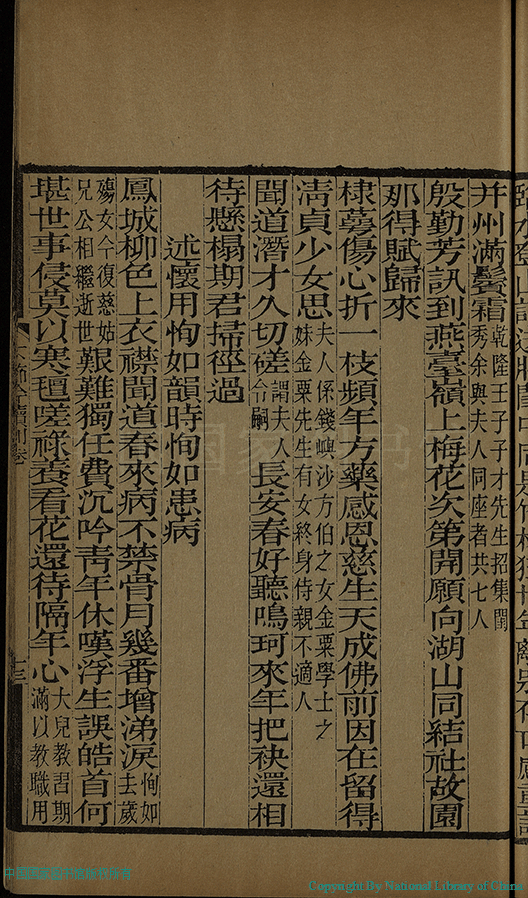 并州滿鬢霜乾隆壬子子才先生招集閨秀余與夫人同座者共七人
殷勤芳訊到燕臺嶺上梅花次第開願向湖山同結社故園
那得賦歸來
棣萼傷心折一枝頻年方藥感恩慈生天成佛前因在留得
淸貞少女思夫人係錢嶼沙方伯之女金粟學士之妹金粟先生有女終身侍親不適人
聞道潛才久切磋謂夫人令嗣長安春好聽鳴珂來年把袂還相
待懸榻期君掃徑過
述懷用恂如韻時恂如患病
鳳城柳色上衣襟聞道春來病不禁骨月幾番增涕淚恂如去歲
殤女今復慈姑兄公相繼逝世艱難獨任費沉吟靑年休嘆浮生誤皓首何
堪世事侵莫以寒氊嗟祿養看花還待隔年心大兒教習期滿以教職用
十三
中国国家图书馆
Copyright By National Library of China